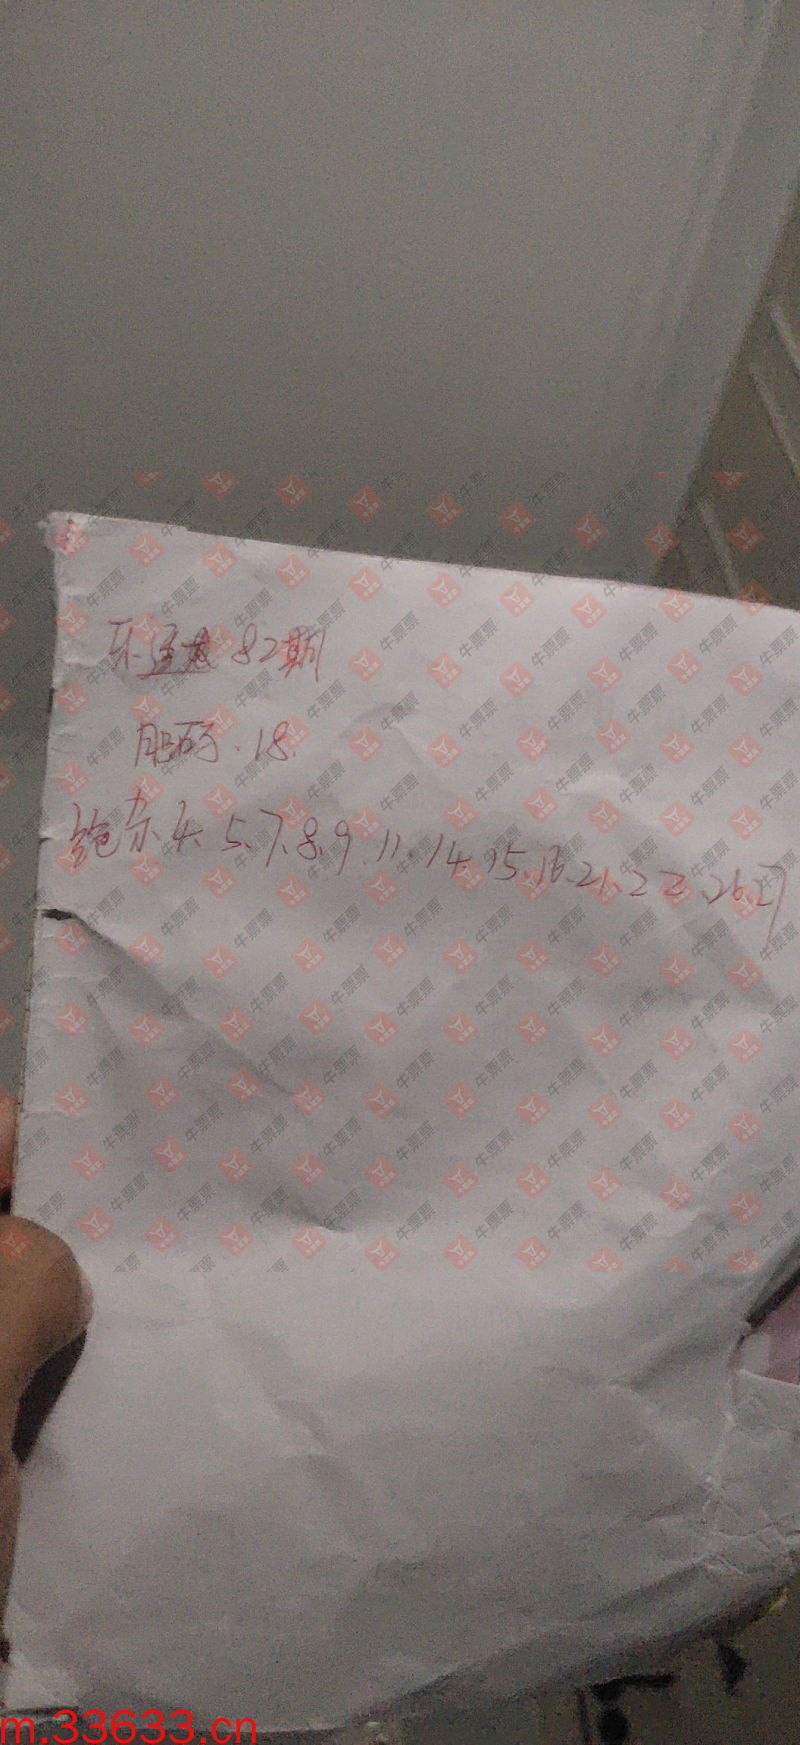 乐透 82期
胆码.18.
绝杀.4.5.7.8.9.11.14.15.16.21.22.26.27
牛票票
m.33633.cn